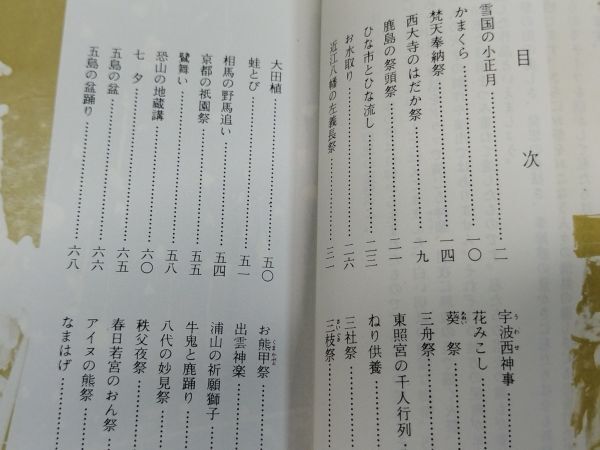 目次
雪国の小正月……二
かまくら……一〇
梵天奉納祭……一四
西大寺のはだか祭……一九
鹿島の祭頭祭……二一
ひな市とひな流し……二三
お水取り……二六
近江八幡の左義長祭……三一
宇波西神事
うわせ
花みこし
葵祭
あおい
三舟祭
東照宮の千人行列
ねり供養
三社祭
三枝祭
さいぐさ
大田植……五〇
蛙とび……五一
相馬の野馬追い……五四
京都の祇園祭……五五
鷺舞い……五八
恐山の地蔵講……六〇
七夕……六五
五島の盆……六六
五島の盆踊り……六八
お熊甲祭
くまかぶと
出雲神楽
浦山の祈願獅子
牛鬼と鹿踊り
八代の妙見祭
秩父夜祭
春日若宮のおん祭
アイヌの熊祭
なまはげ